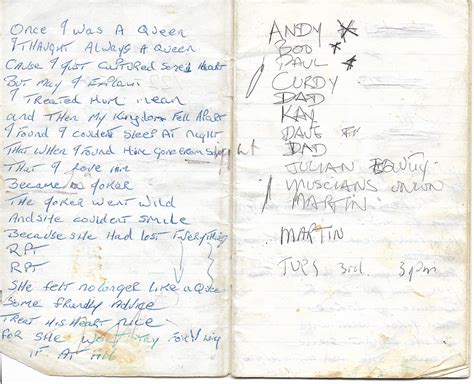 Once I was A Queen
I THOUGHT Always A Queen
CAUSE I JUST CAPTURED Heart
But May I Explain
I Treated Him mean
and Then My Kingdom Fell Apart
I Found I couldent Sleep AT Night
That when I found Gone From
That I love him
Became Joker
The JOKER WENT Wild
And she couldent Smile
Because she Had lost Everything
RPT
RPT
She Felt no longer like a Queen
Some Advice
Treat His Heart nice
For she won't
IT AT All
ANDY
BOD
PAUL
CURDY
DAD
KAY
DAVE
DAD
JULIAN
MUSCIANS UNION
MARTIN
MARTIN
TUES 3rd. 3pm